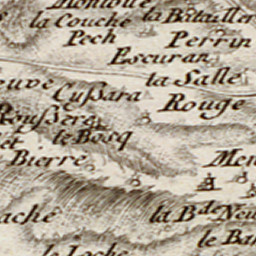 la Couche
la Batailler
Pech
Perrin
Escuran
la Salle
euve
Cussara
Rouge
le Bosq
et
Bierre
Men
aché
la Bde Neu
le Bar
le Loche